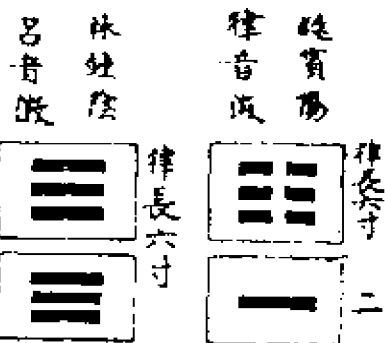 蕤賓陽
律音徵
律長六寸
二
林鍾陰
呂音徵
律長六寸